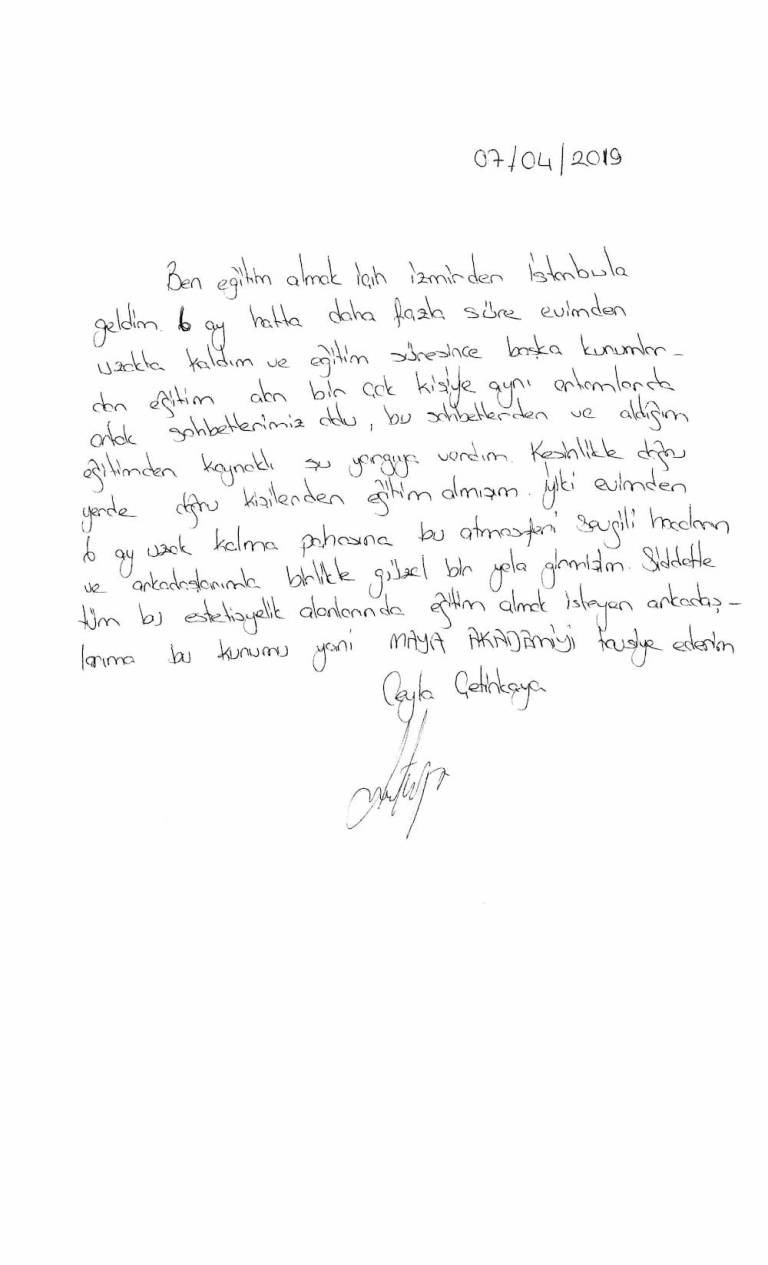 07/04/2019
Ben eğitim almak için izmirden İstanbula
geldim. 6 ay hatta daha fazla süre evimden
uzakta kaldım ve eğitim süresince başka kurumlar-
dan eğitim alan bir çok kişiyle aynı ortamlarda
ortak sohbetlerimiz oldu, bu sohbetlerden ve aldığım
eğitimden kaynaklı şu yargıya vardım. Kesinlikle doğru
yerde doğru kişilerden eğitim almışım. İyiki evimden
6 ay uzak kalma pahasına bu atmosferi sevgili hocalarım
ve arkadaşlarımla birlikte güzel bir yola girmişim. Şiddetle
tüm bu estetisyelik alanlarında eğitim almak isteyen arkadaş-
larıma bu kurumu yani MAYA AKADEMİyi tavsiye ederim
Ceyla Çetinkaya